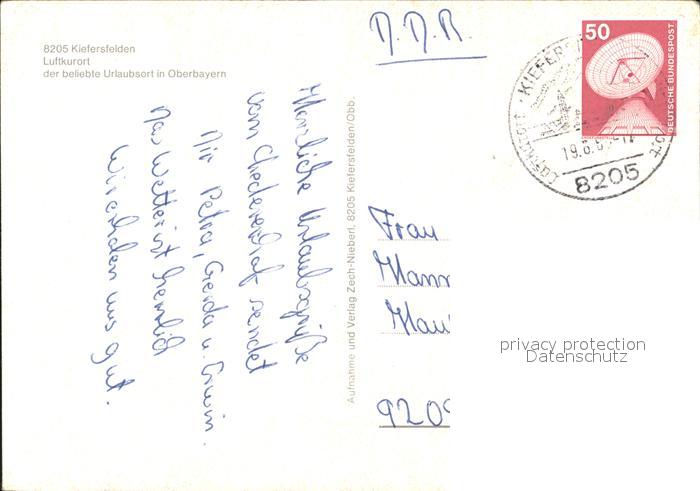 8205 Kiefersfelden
Luftkurort
der beliebte Urlaubsort in Oberbayern
Herzliche Urlaubsgrüße
vom sendet
Dir Petra, Gerda u. Erwin.
Das Wetter ist herrlich
Wir erholen uns gut.
Aufnahme und Verlag Zech-Nieberl, 8205 Kiefersfelden/Obb.
D. D. R.
50
DEUTSCHE BUNDESPOST
KIEFERS
LUFTKURORT
19.8.
8205
Frau
Mann
Hau
920
privacy protection
Datenschutz